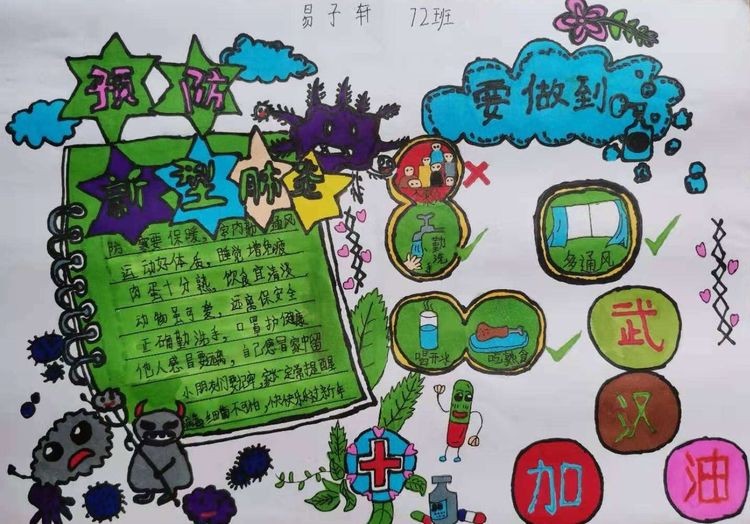 易子轩 72班
预防
新型肺炎
防寒要保暖,室内勤通风
运动好体质,睡觉增免疫
肉蛋十分熟,饮食宜清浅
动物虽可爱,远离保安全
正确勤洗手,口罩护健康
他人感冒要隔离,自己感冒家中留
小朋友们要记牢,家长一定常提醒
细菌不可怕,快快乐乐过新年
要做到
勤洗手
多通风
喝开水
吃熟食
武
汉
加
油